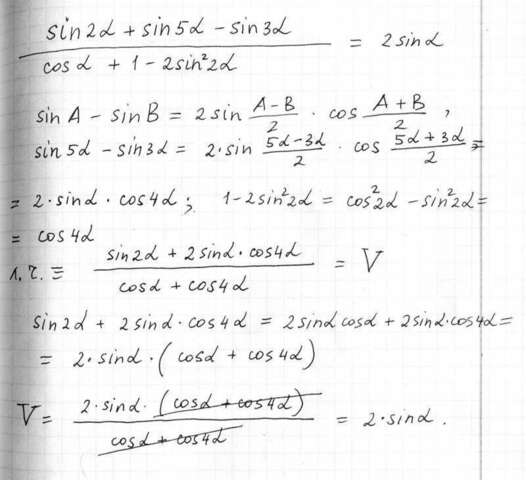 (sin2α + sin5α - sin3α)/(cosα + 1 - 2sin²2α) = 2sinα
sinA - sinB = 2sin (A-B)/2 · cos (A+B)/2 ,
sin5α - sin3α = 2·sin (5α-3α)/2 · cos (5α+3α)/2 =
= 2·sinα · cos4α ; 1-2sin²2α = cos²2α - sin²2α =
= cos4α
(sin2α + 2sinα·cos4α)/(cosα + cos4α) = V
sin2α + 2sinα·cos4α = 2sinα cosα + 2sinα·cos4α =
= 2·sinα·(cosα + cos4α)
V = (2·sinα·(cosα + cos4α))/(cosα + cos4α) = 2·sinα.